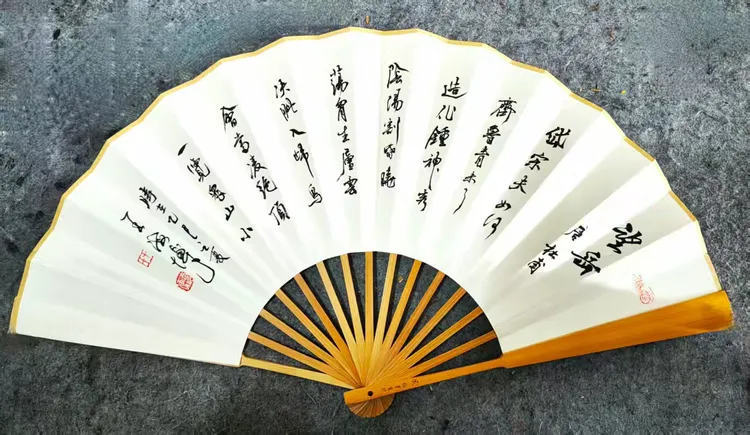 望岳
唐 杜甫
岱宗夫如何
齊魯青未了
造化鍾神秀
陰陽割昏曉
蕩胸生層雲
决眦入歸鳥
會當凌絶頂
一覽眾山小
乙巳 夏
王